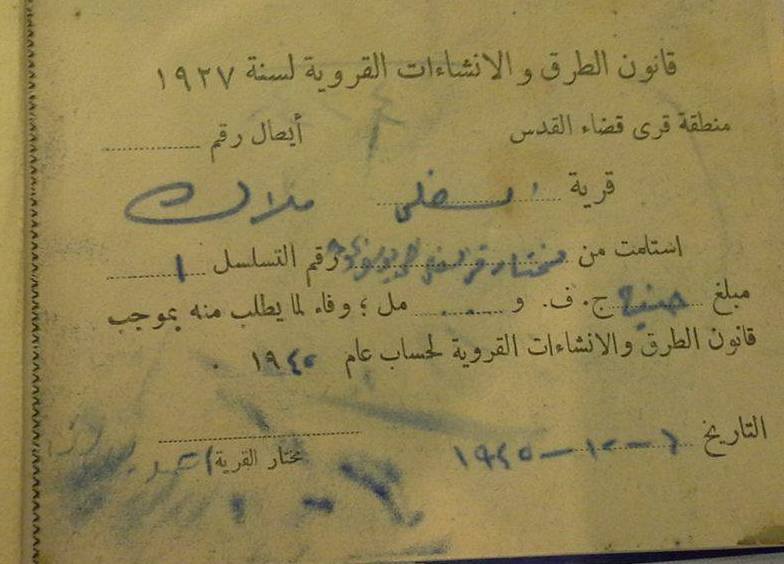 قانون الطرق والانشاءات القروية لسنة ١٩٢٧
منطقة قرى قضاء القدس أيصال رقم
قرية السفلى ملاك
استلمت من مختار رقم التسلسل ١
مبلغ جنيه ج. ف. و مل ؛ وفاء لما يطلب منه بموجب
قانون الطرق والانشاءات القروية لحساب عام ١٩٤٥
التاريخ ١٩٤٥
مختار القرية